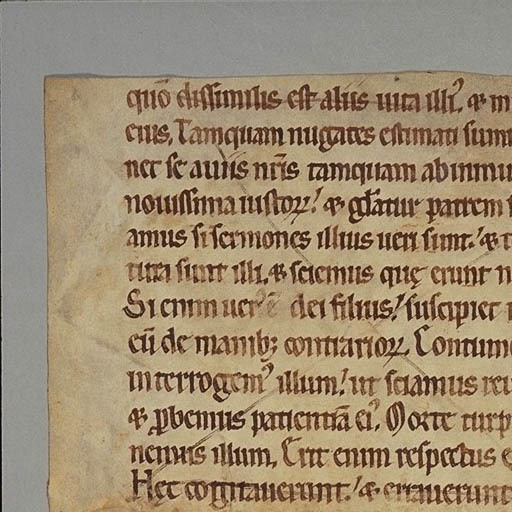 quō dissimilis est aliis uita illiꝰ. & in
eius. Tamquam nugaces estimati sumus
net se a uiis nr̄is tamquam ab inmu
nouissima iustoꝝ. & gl̄atur patrem
amus si sermones illius ueri sunt. & t
tura sunt illi. & sciemus quę erunt n
Si enim uerꝰ ē dei filius. suscipiet
eū de manibꝫ contrarioꝝ. Contume
interrogemꝰ illum. ut sciamus reu
& ꝓbemus patientiā eiꝰ. Morte turp
nemus illum. Erit enim respectus e
Hęc cogitauerunt. & errauerunt